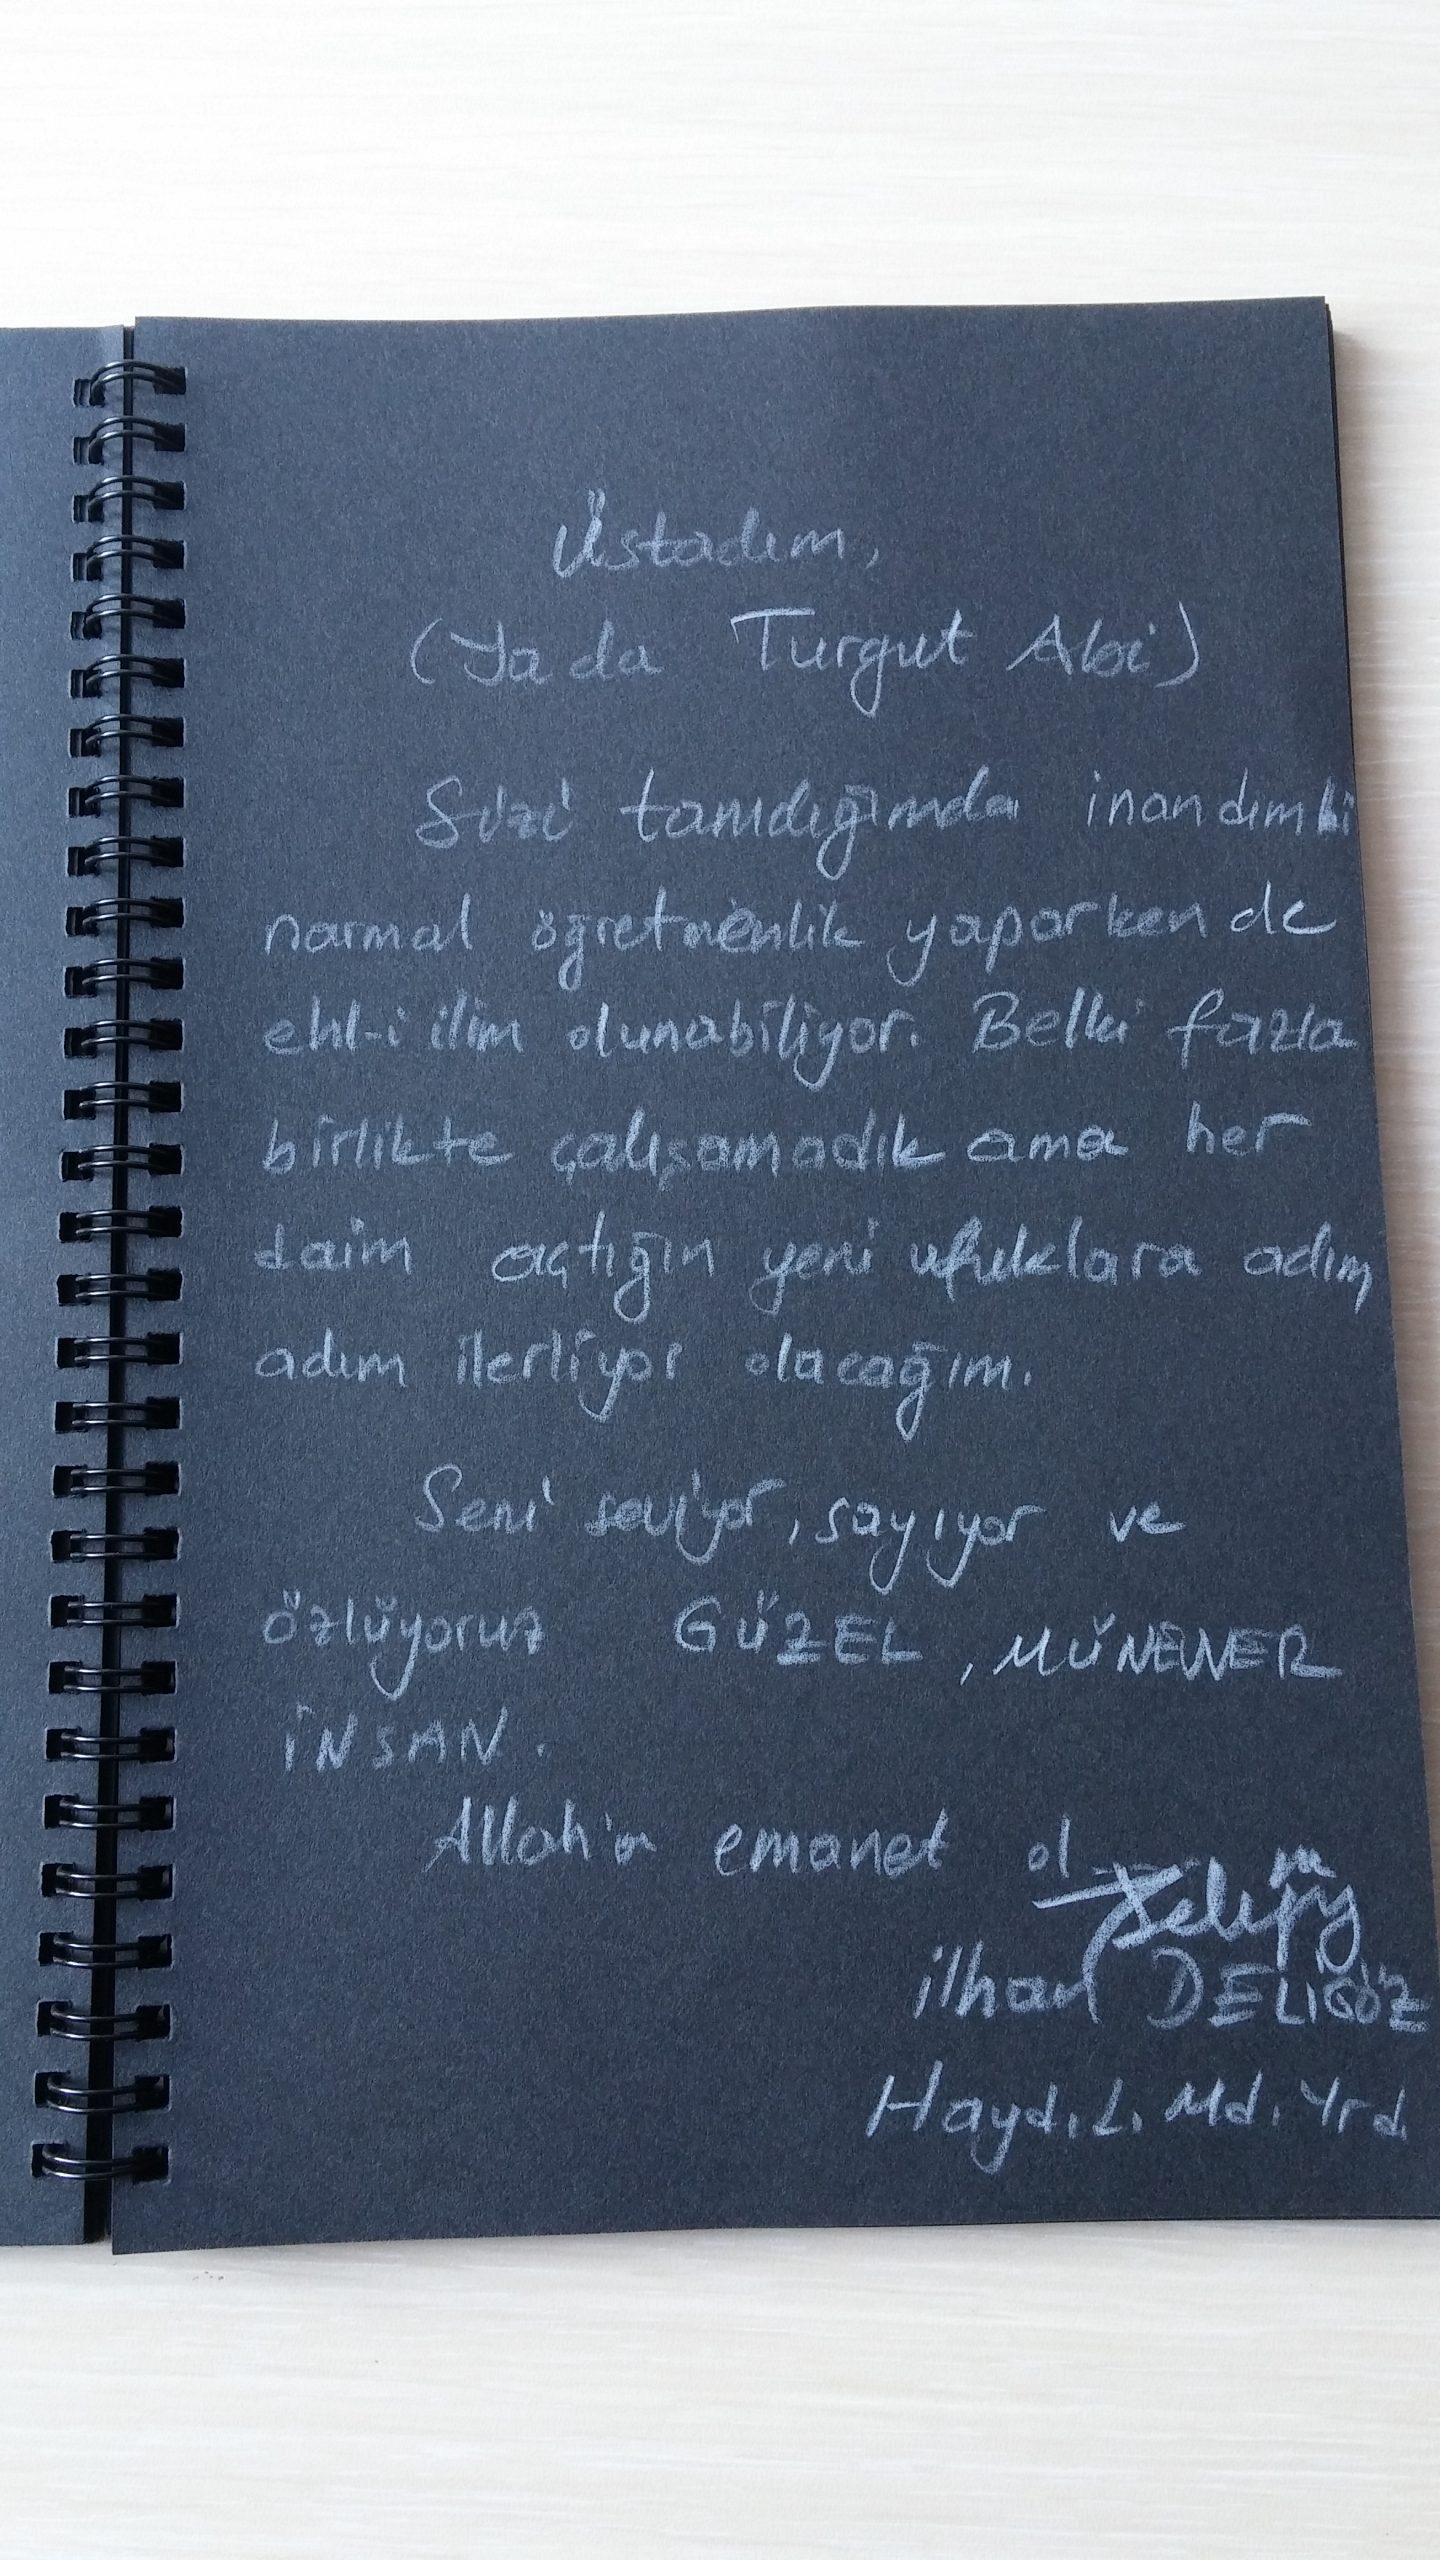 Üstadım,
(Ya da Turgut Abi)
Sizi tanıdığımda inandım ki
normal öğretmenlik yaparken de
ehl-i ilim olunabiliyor. Belki fazla
birlikte çalışamadık ama her
daim açtığın yeni ufuklara adım
adım ilerliyor olacağım.
Seni seviyor, sayıyor ve
özlüyoruz GÜZEL, MÜNEVVER
İNSAN.
Allah'a emanet ol
ilhan DELİGÖZ
Hayd. L. Md. Yrd.